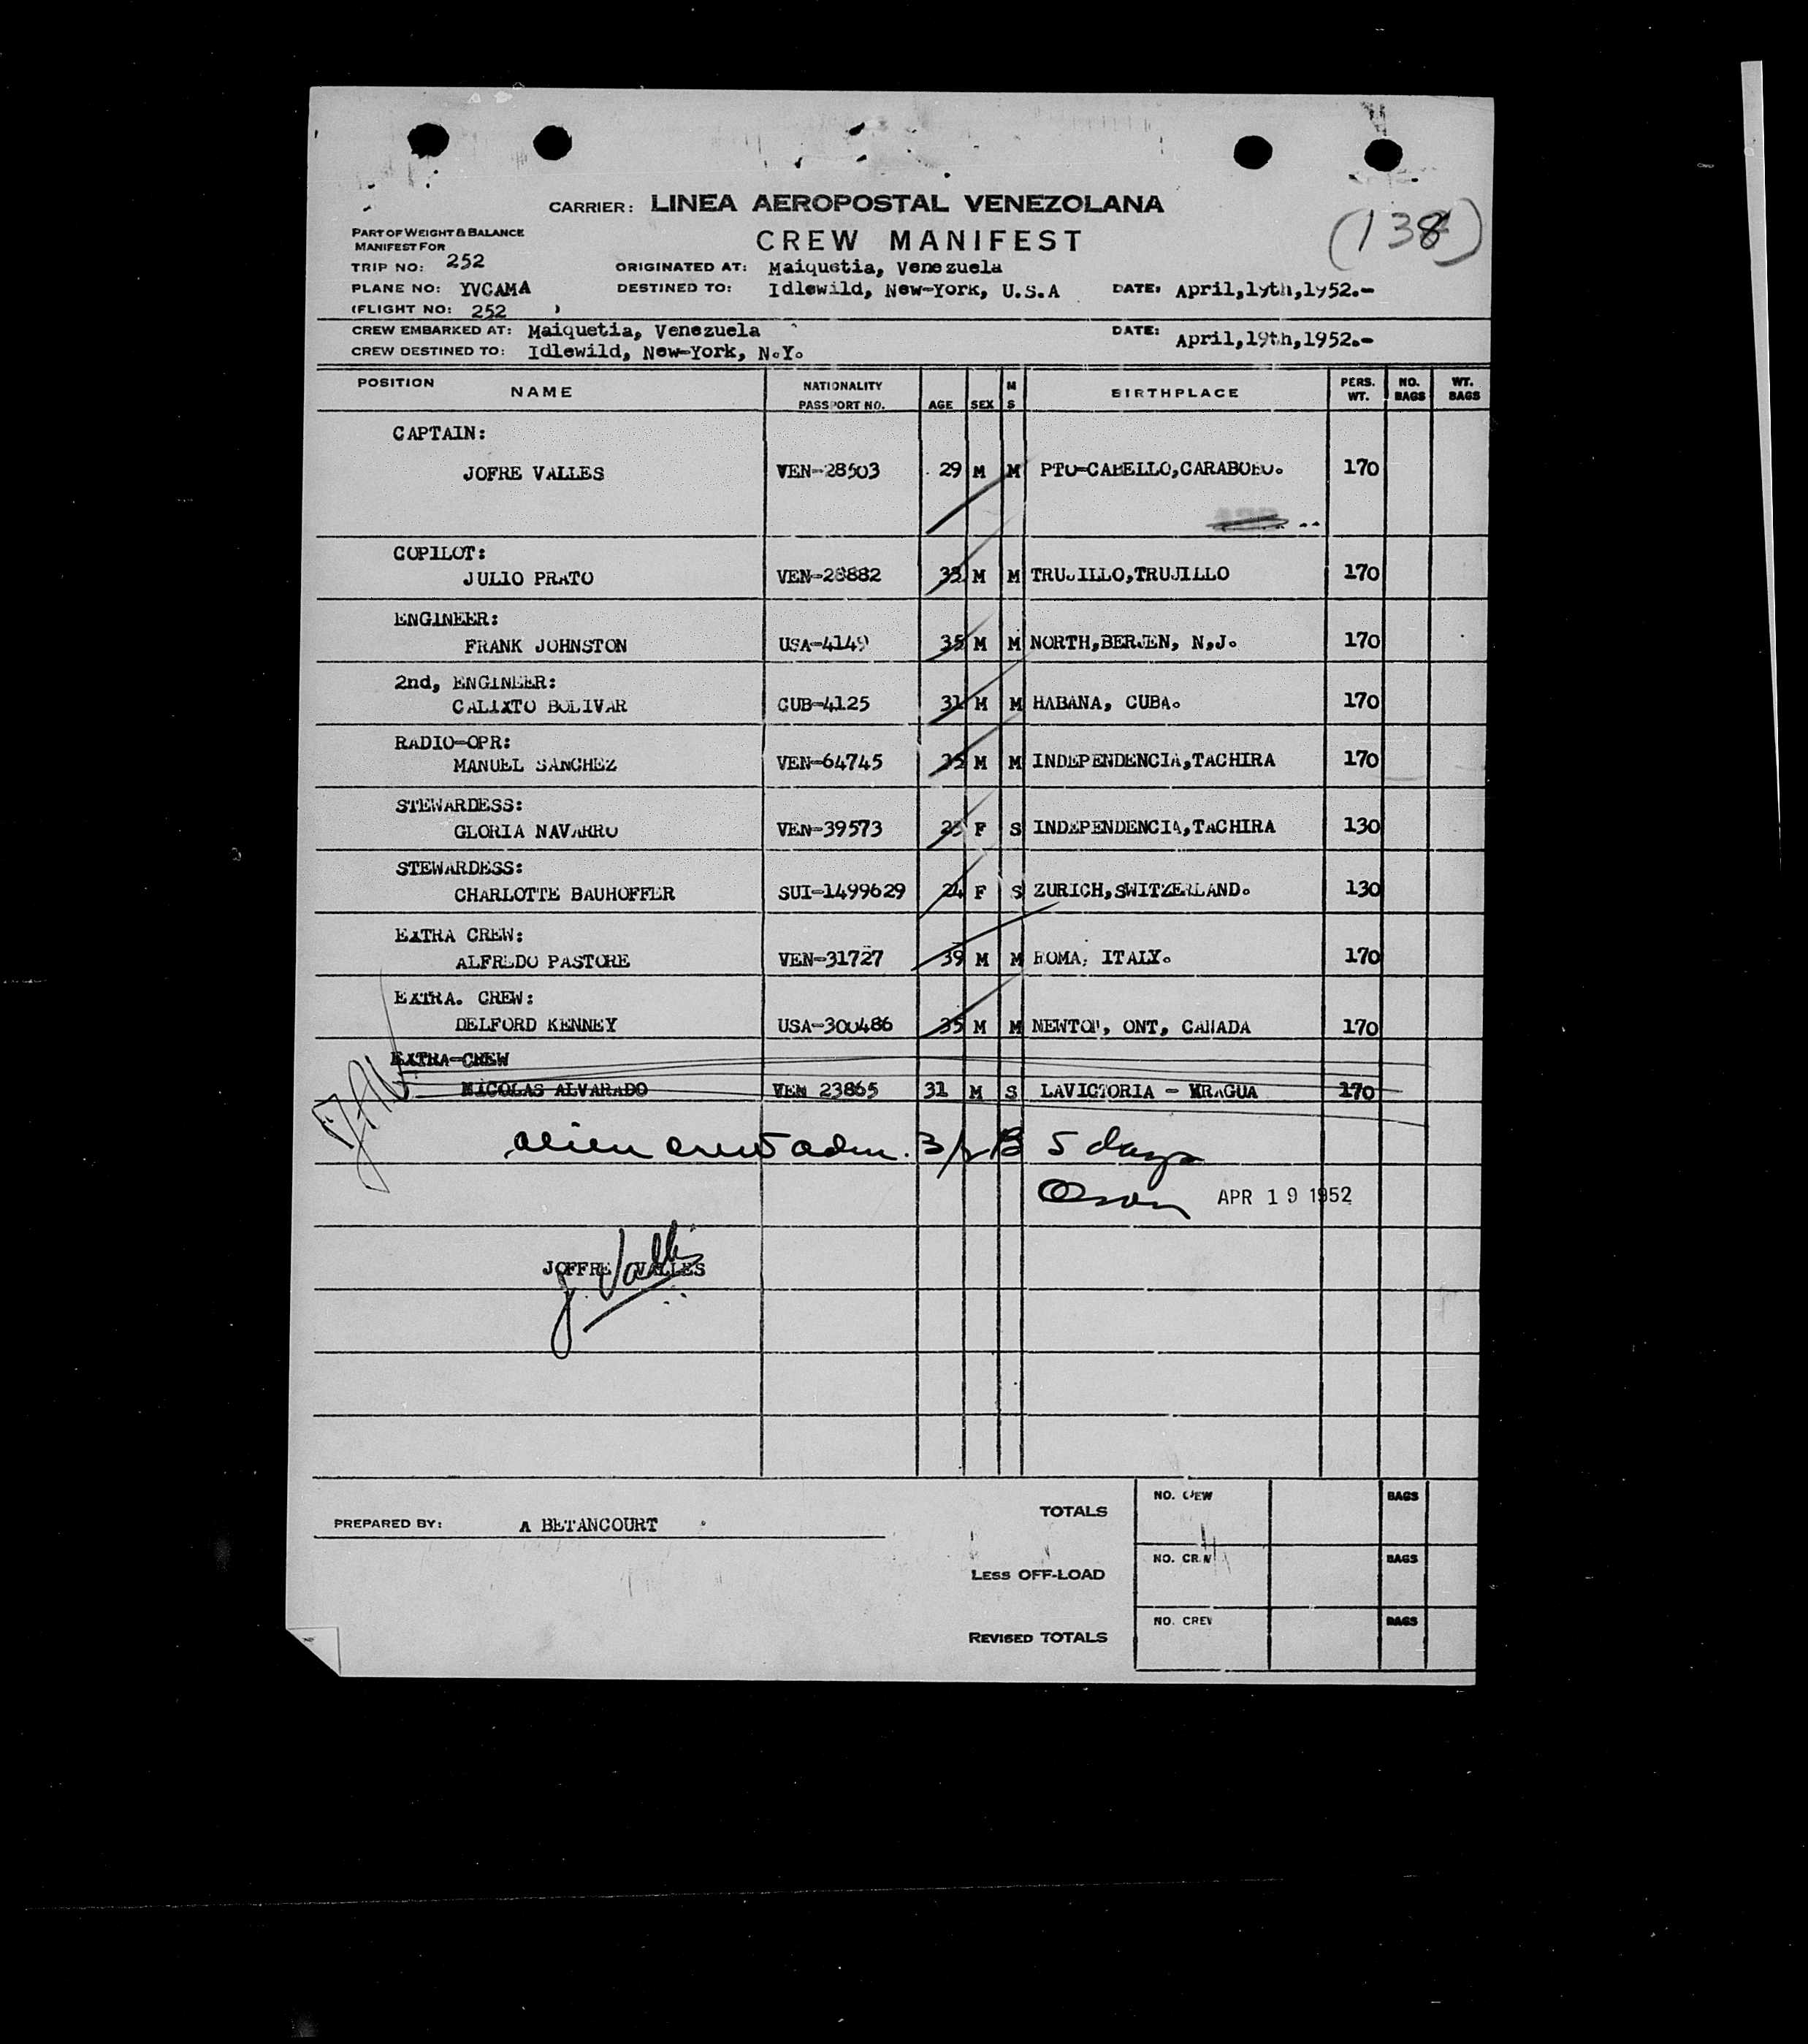 CARRIER: LINEA AEROPOSTAL VENEZOLANA
(138)
PART OF WEIGHT & BALANCE
MANIFEST FOR
CREW MANIFEST
TRIP NO: 252 ORIGINATED AT: Maiquetia, Venezuela
PLANE NO: YVCAMA DESTINED TO: Idlewild, New-York, U.S.A DATE: April,19th,1952.-
(FLIGHT NO: 252 )
CREW EMBARKED AT: Maiquetia, Venezuela DATE: April,19th,1952.-
CREW DESTINED TO: Idlewild, New-York, N.Y.
POSITION NAME NATIONALITY PASSPORT NO. AGE SEX M S BIRTHPLACE PERS. WT. NO. BAGS WT. BAGS
CAPTAIN:
JOFRE VALLES VEN-28503 29 M M PTO-CABELLO,CARABOBO. 170
COPILOT:
JULIO PRATO VEN-28882 M M TRUJILLO,TRUJILLO 170
ENGINEER:
FRANK JOHNSTON USA-4149 35 M M NORTH,BERJEN, N,J. 170
2nd, ENGINEER:
CALIXTO BOLIVAR CUB-4125 31 M M HABANA, CUBA. 170
RADIO-OPR:
MANUEL SANCHEZ VEN-64745 M M INDEPENDENCIA,TACHIRA 170
STEWARDESS:
GLORIA NAVARRO VEN-39573 F S INDEPENDENCIA,TACHIRA 130
STEWARDESS:
CHARLOTTE BAUHOFFER SUI-1499629 24 F S ZURICH,SWITZERLAND. 130
EXTRA CREW:
ALFREDO PASTORE VEN-31727 39 M M ROMA, ITALY. 170
EXTRA. CREW:
DELFORD KENNEY USA-300486 35 M M NEWTON, ONT, CANADA 170
EXTRA-CREW
NICOLAS ALVARADO VEN 23865 31 M S LAVICTORIA - ARAGUA 170
alien crew adm. 5 days
Olson APR 19 1952
JOFFRE VALLES
J. Valles
PREPARED BY: A BETANCOURT
TOTALS NO. CREW BAGS
LESS OFF-LOAD NO. CREW BAGS
REVISED TOTALS NO. CREW BAGS